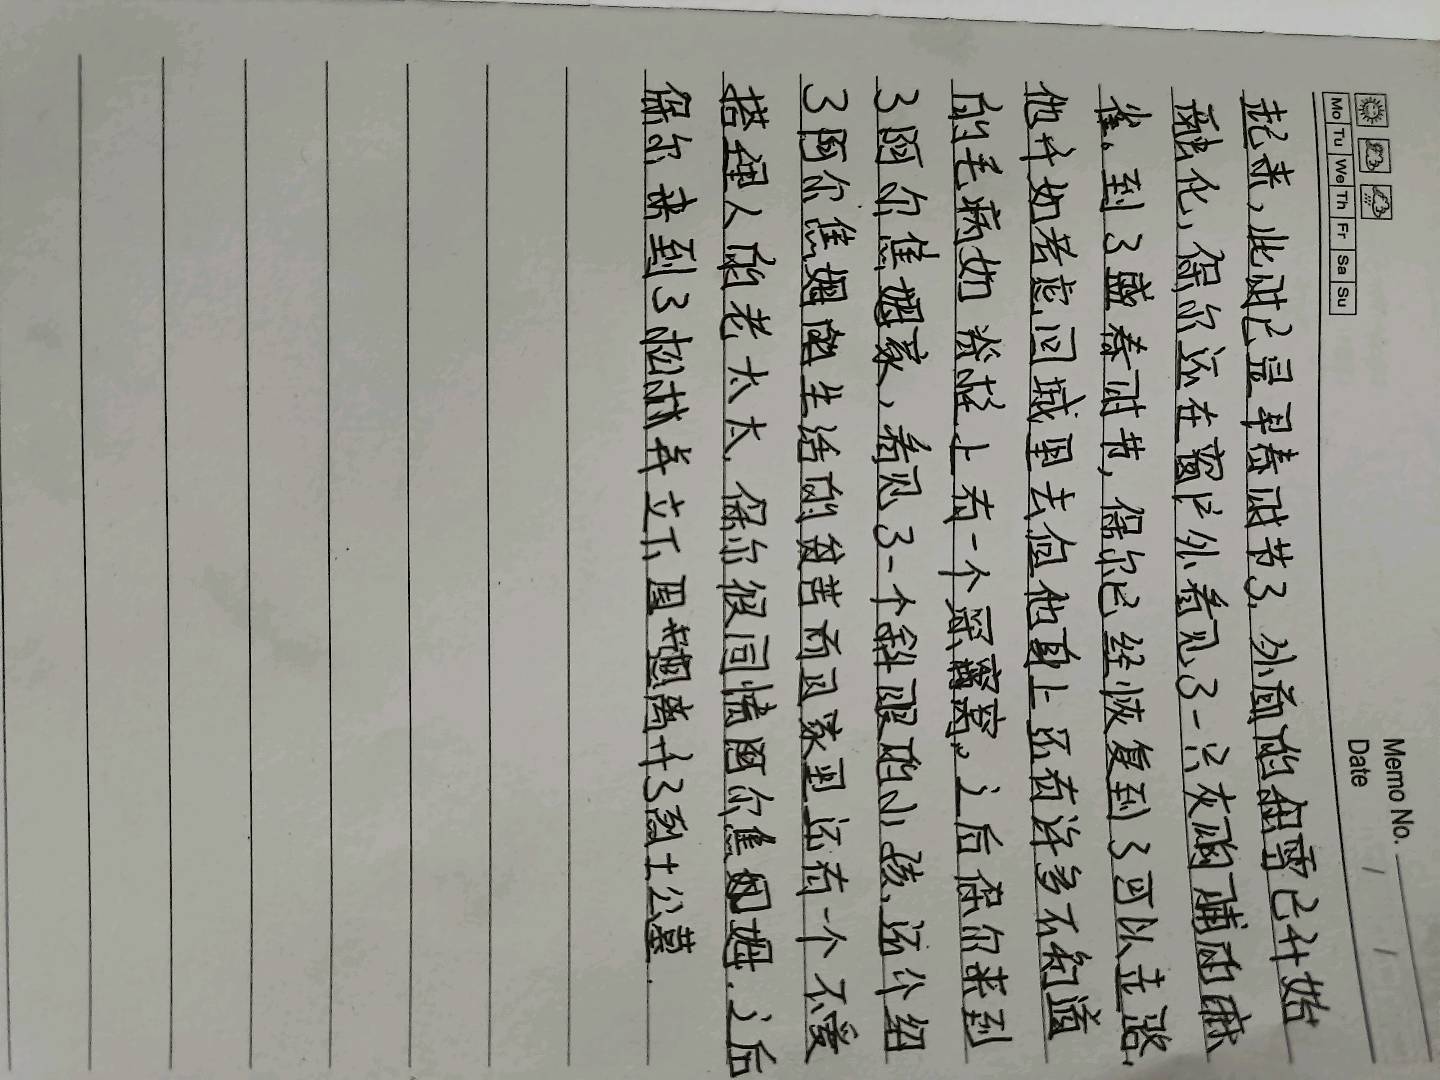 Memo No.
Mo Tu We Th Fr Sa Su
Date / /
起来,此时已是早春时节了.外面的积雪已开始
融化,保尔还在窗户外看见了一只灰胸脯的麻
雀。到了盛春时节,保尔已经恢复到了可以走路,
他开始考虑回城里去但他身上还有许多不知道
的毛病如脊椎上有一个深窝窝。之后保尔来到
了阿尔焦姆家,看见了一个斜眼的小孩.还介绍
了阿尔焦姆的生活的贫苦而且家里还有一个不爱
搭理人的老太太.保尔很同情阿尔焦姆.之后
保尔来到了松林并立下 离开了烈士公墓.